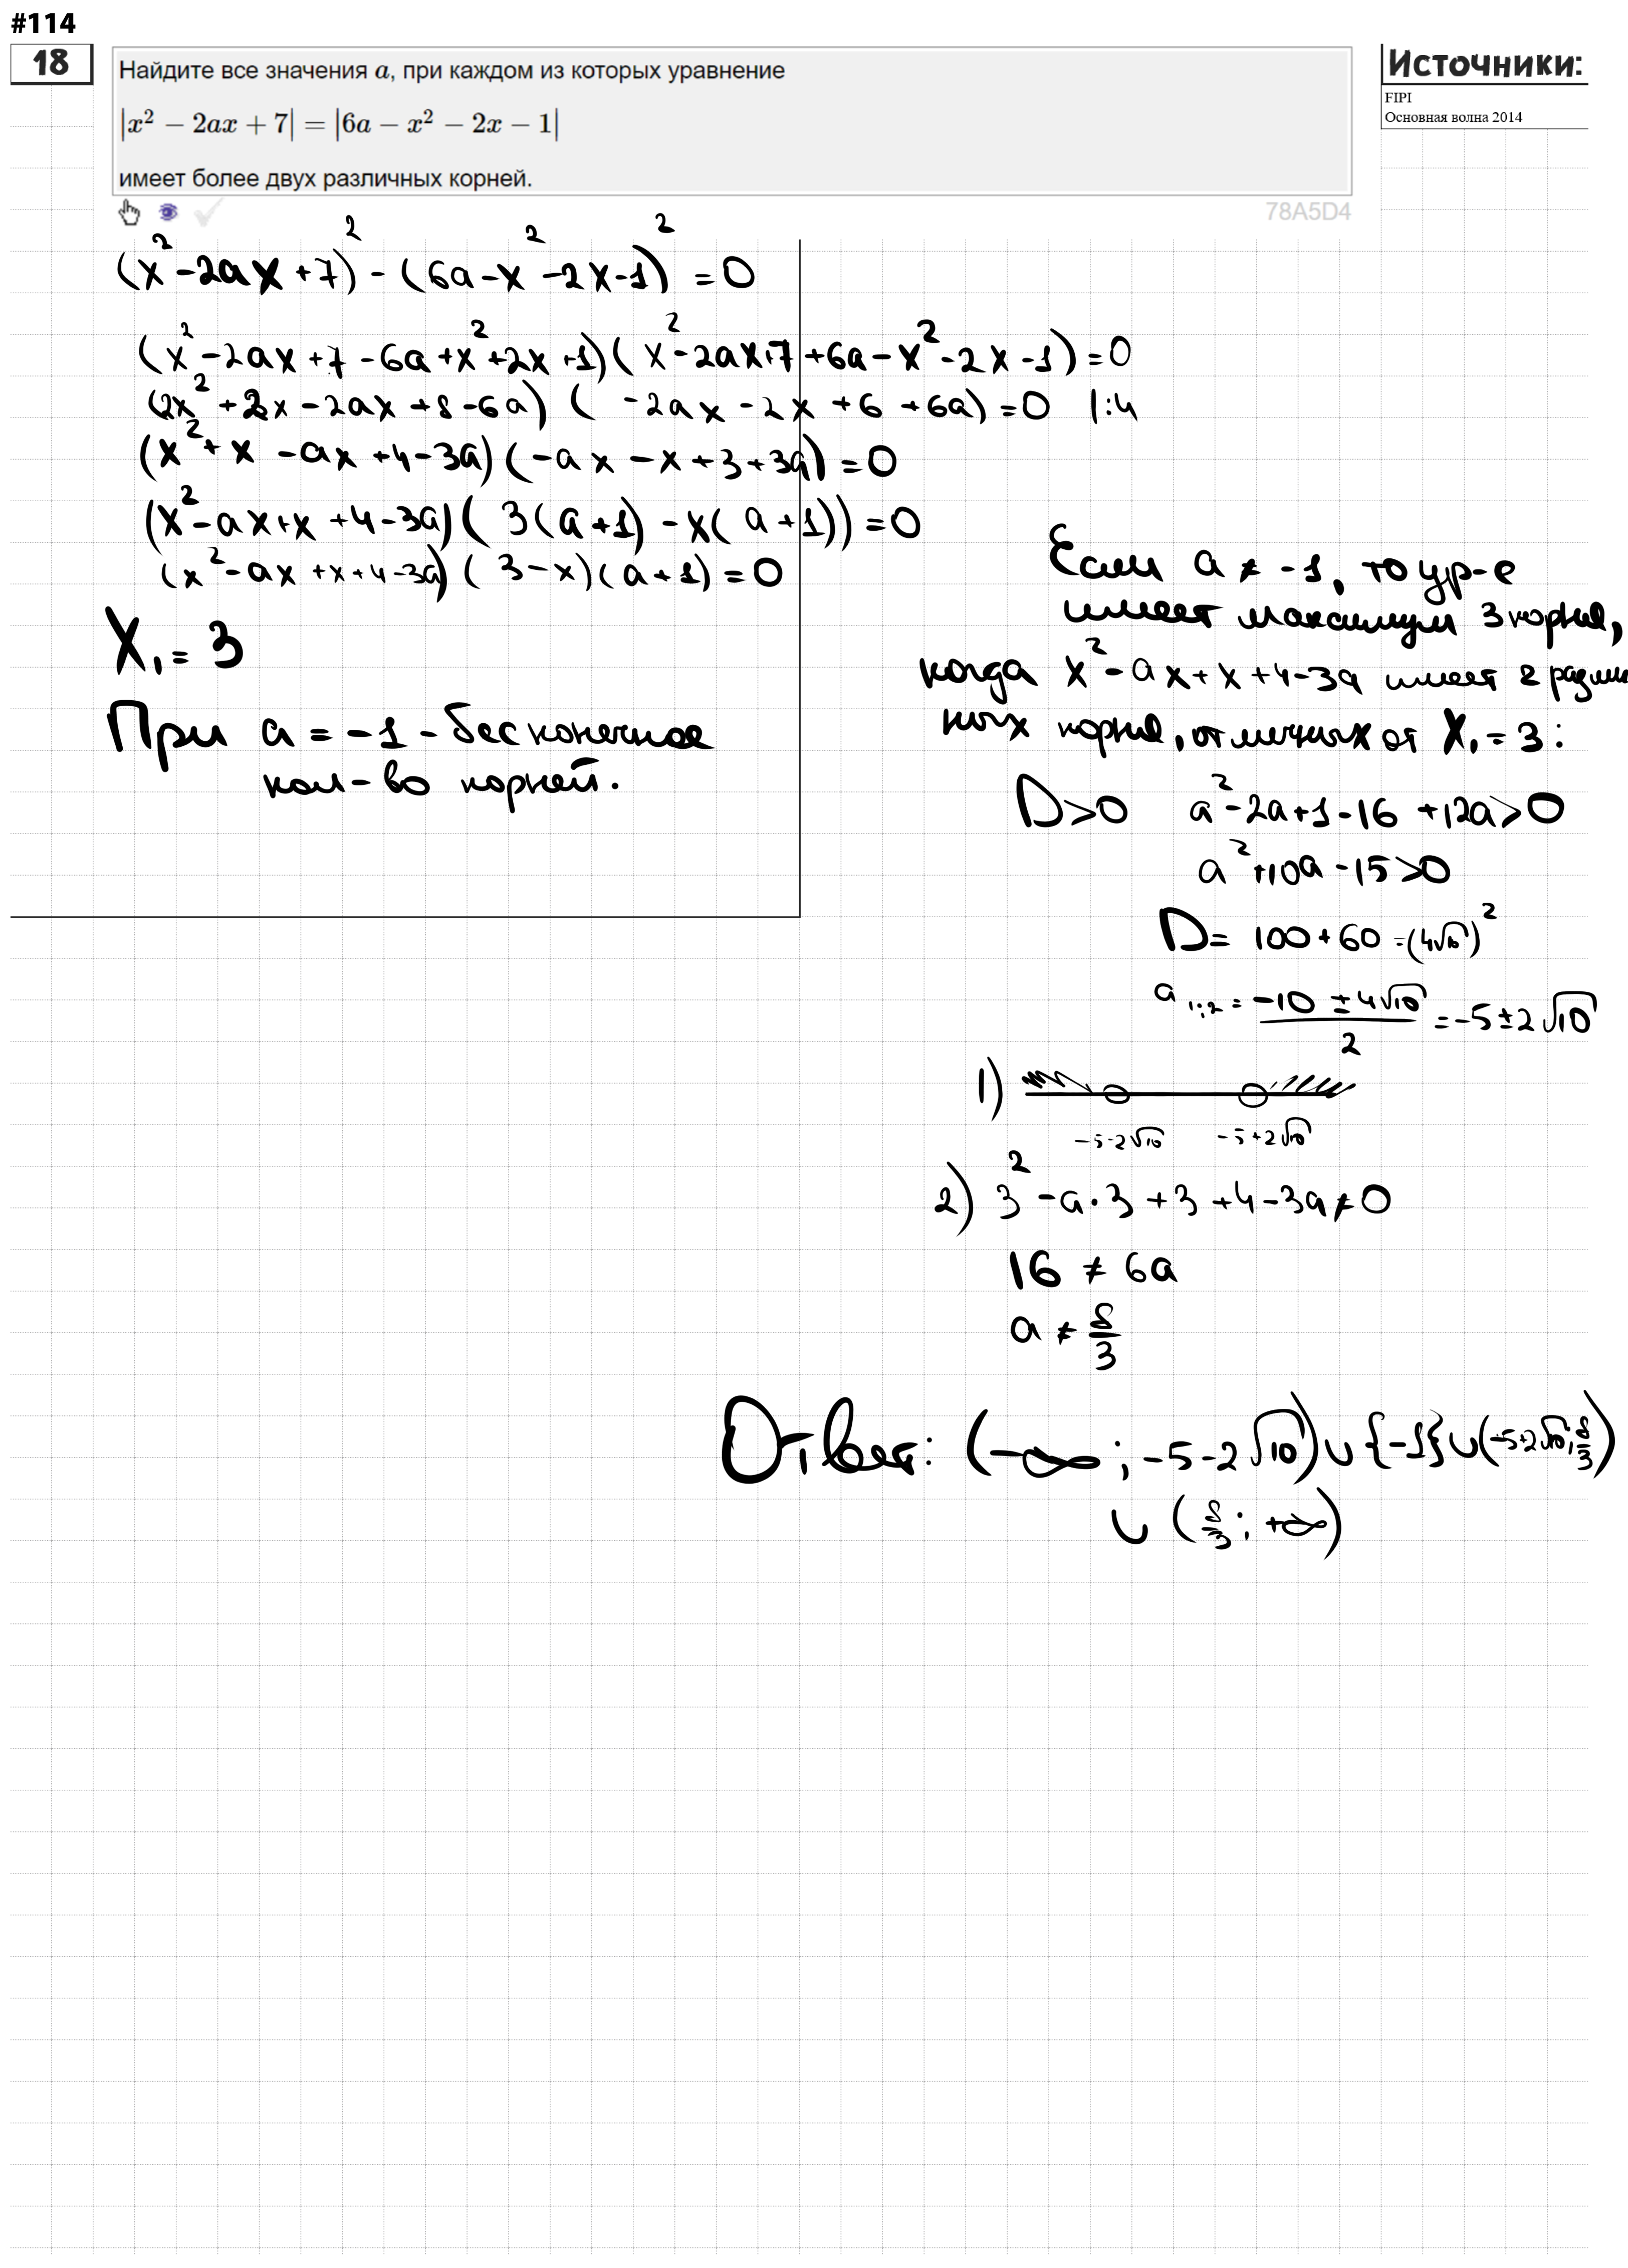 #114
18
Источники:
Найдите все значения a, при каждом из которых уравнение
|x² − 2ax + 7| = |6a − x² − 2x − 1|
имеет более двух различных корней.
FIPI
Основная волна 2014
78A5D4
(x² - 2ax + 7)² - (6a - x² - 2x - 1)² = 0
(x² - 2ax + 7 - 6a + x² + 2x + 1)(x² - 2ax + 7 + 6a - x² - 2x - 1) = 0
(2x² + 2x - 2ax + 8 - 6a) (-2ax - 2x + 6 + 6a) = 0 |:4
(x² + x - ax + 4 - 3a)(-ax - x + 3 + 3a) = 0
(x² - ax + x + 4 - 3a)(3(a+1) - x(a+1)) = 0
(x² - ax + x + 4 - 3a)(3 - x)(a + 1) = 0
x₁ = 3
При a = -1 - бесконечное
кол-во корней.
Если a ≠ -1, то ур-е
имеет максимум 3 корня,
когда x² - ax + x + 4 - 3a имеет 2 различ
ных корня, отличных от x₁ = 3:
D > 0 a² - 2a + 1 - 16 + 12a > 0
a² + 10a - 15 > 0
D = 100 + 60 = (4√10)²
a₁;₂ = (-10 ± 4√10)/2 = -5 ± 2√10
1)
-5-2√10 -5+2√10
2) 3² - a·3 + 3 + 4 - 3a ≠ 0
16 ≠ 6a
a ≠ 8/3
Ответ: (-∞; -5-2√10) ∪ {-1} ∪ (-5+2√10; 8/3)
∪ (8/3; +∞)